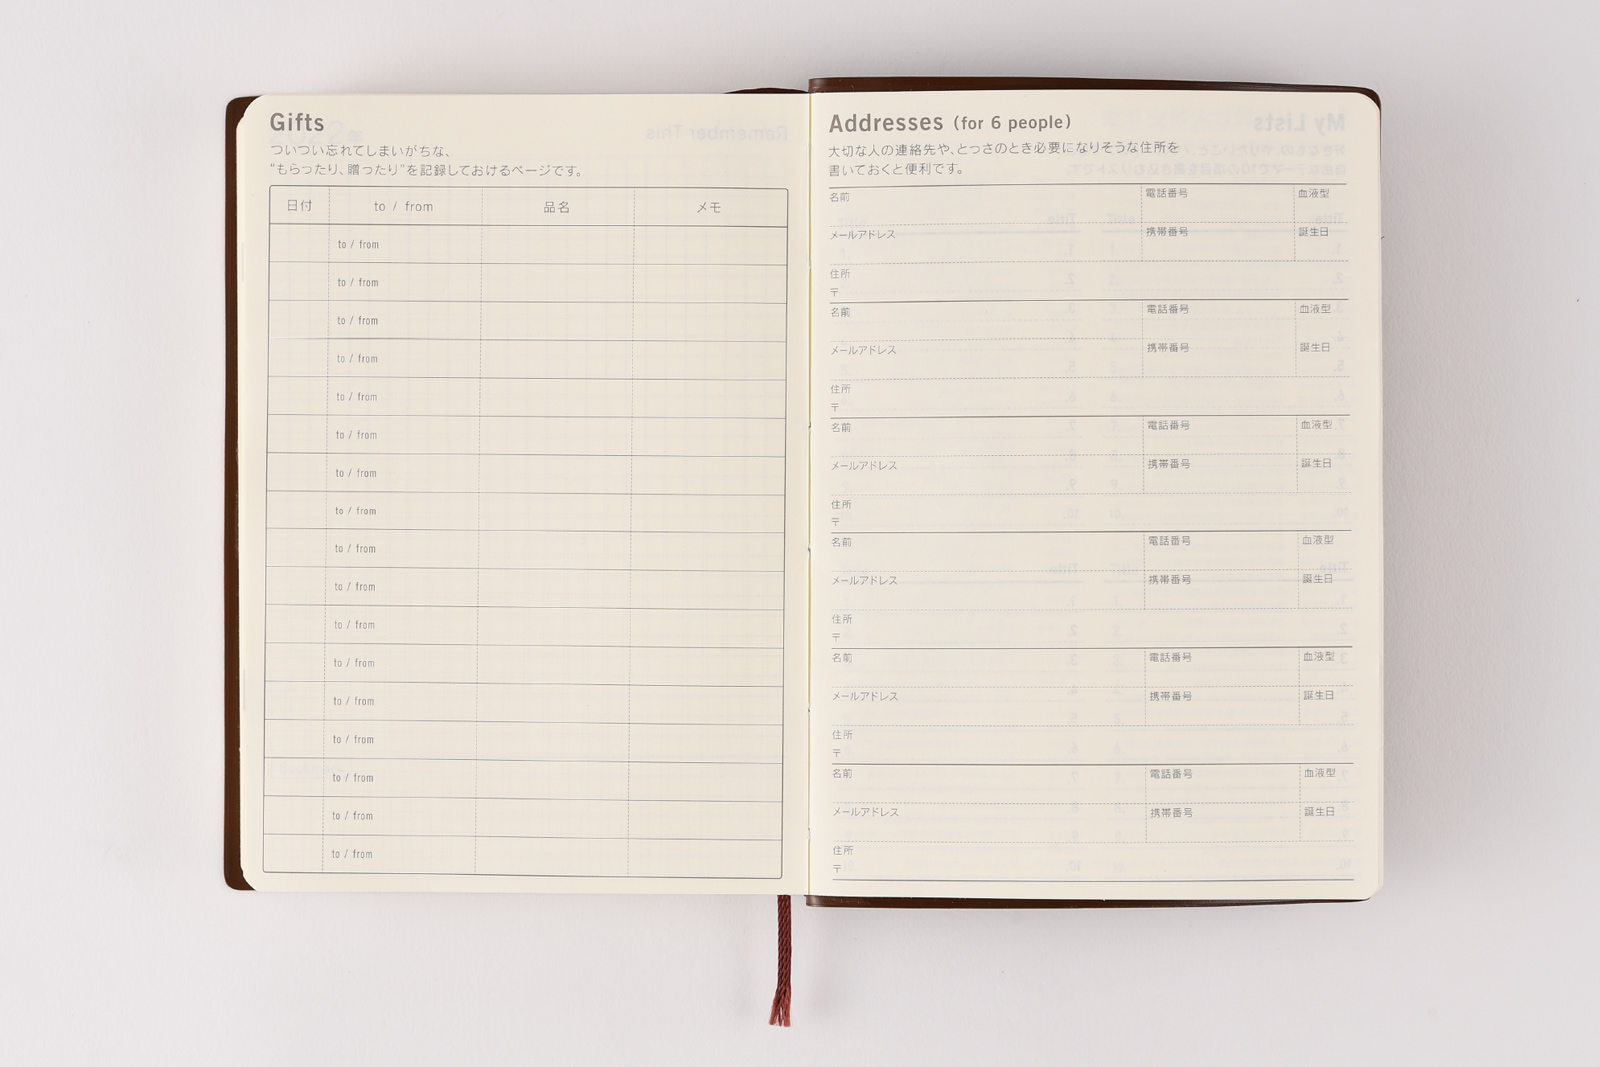 Gifts
ついつい忘れてしまいがちな、
“もらったり、贈ったり”を記録しておけるページです。
日付 to / from 品名 メモ
to / from
to / from
to / from
to / from
to / from
to / from
to / from
to / from
to / from
to / from
to / from
to / from
to / from
to / from
to / from
to / from
to / from
Addresses (for 6 people)
大切な人の連絡先や、とっさのとき必要になりそうな住所を
書いておくと便利です。
名前 電話番号 血液型
メールアドレス 携帯番号 誕生日
住所
〒
名前 電話番号 血液型
メールアドレス 携帯番号 誕生日
住所
〒
名前 電話番号 血液型
メールアドレス 携帯番号 誕生日
住所
〒
名前 電話番号 血液型
メールアドレス 携帯番号 誕生日
住所
〒
名前 電話番号 血液型
メールアドレス 携帯番号 誕生日
住所
〒
名前 電話番号 血液型
メールアドレス 携帯番号 誕生日
住所
〒